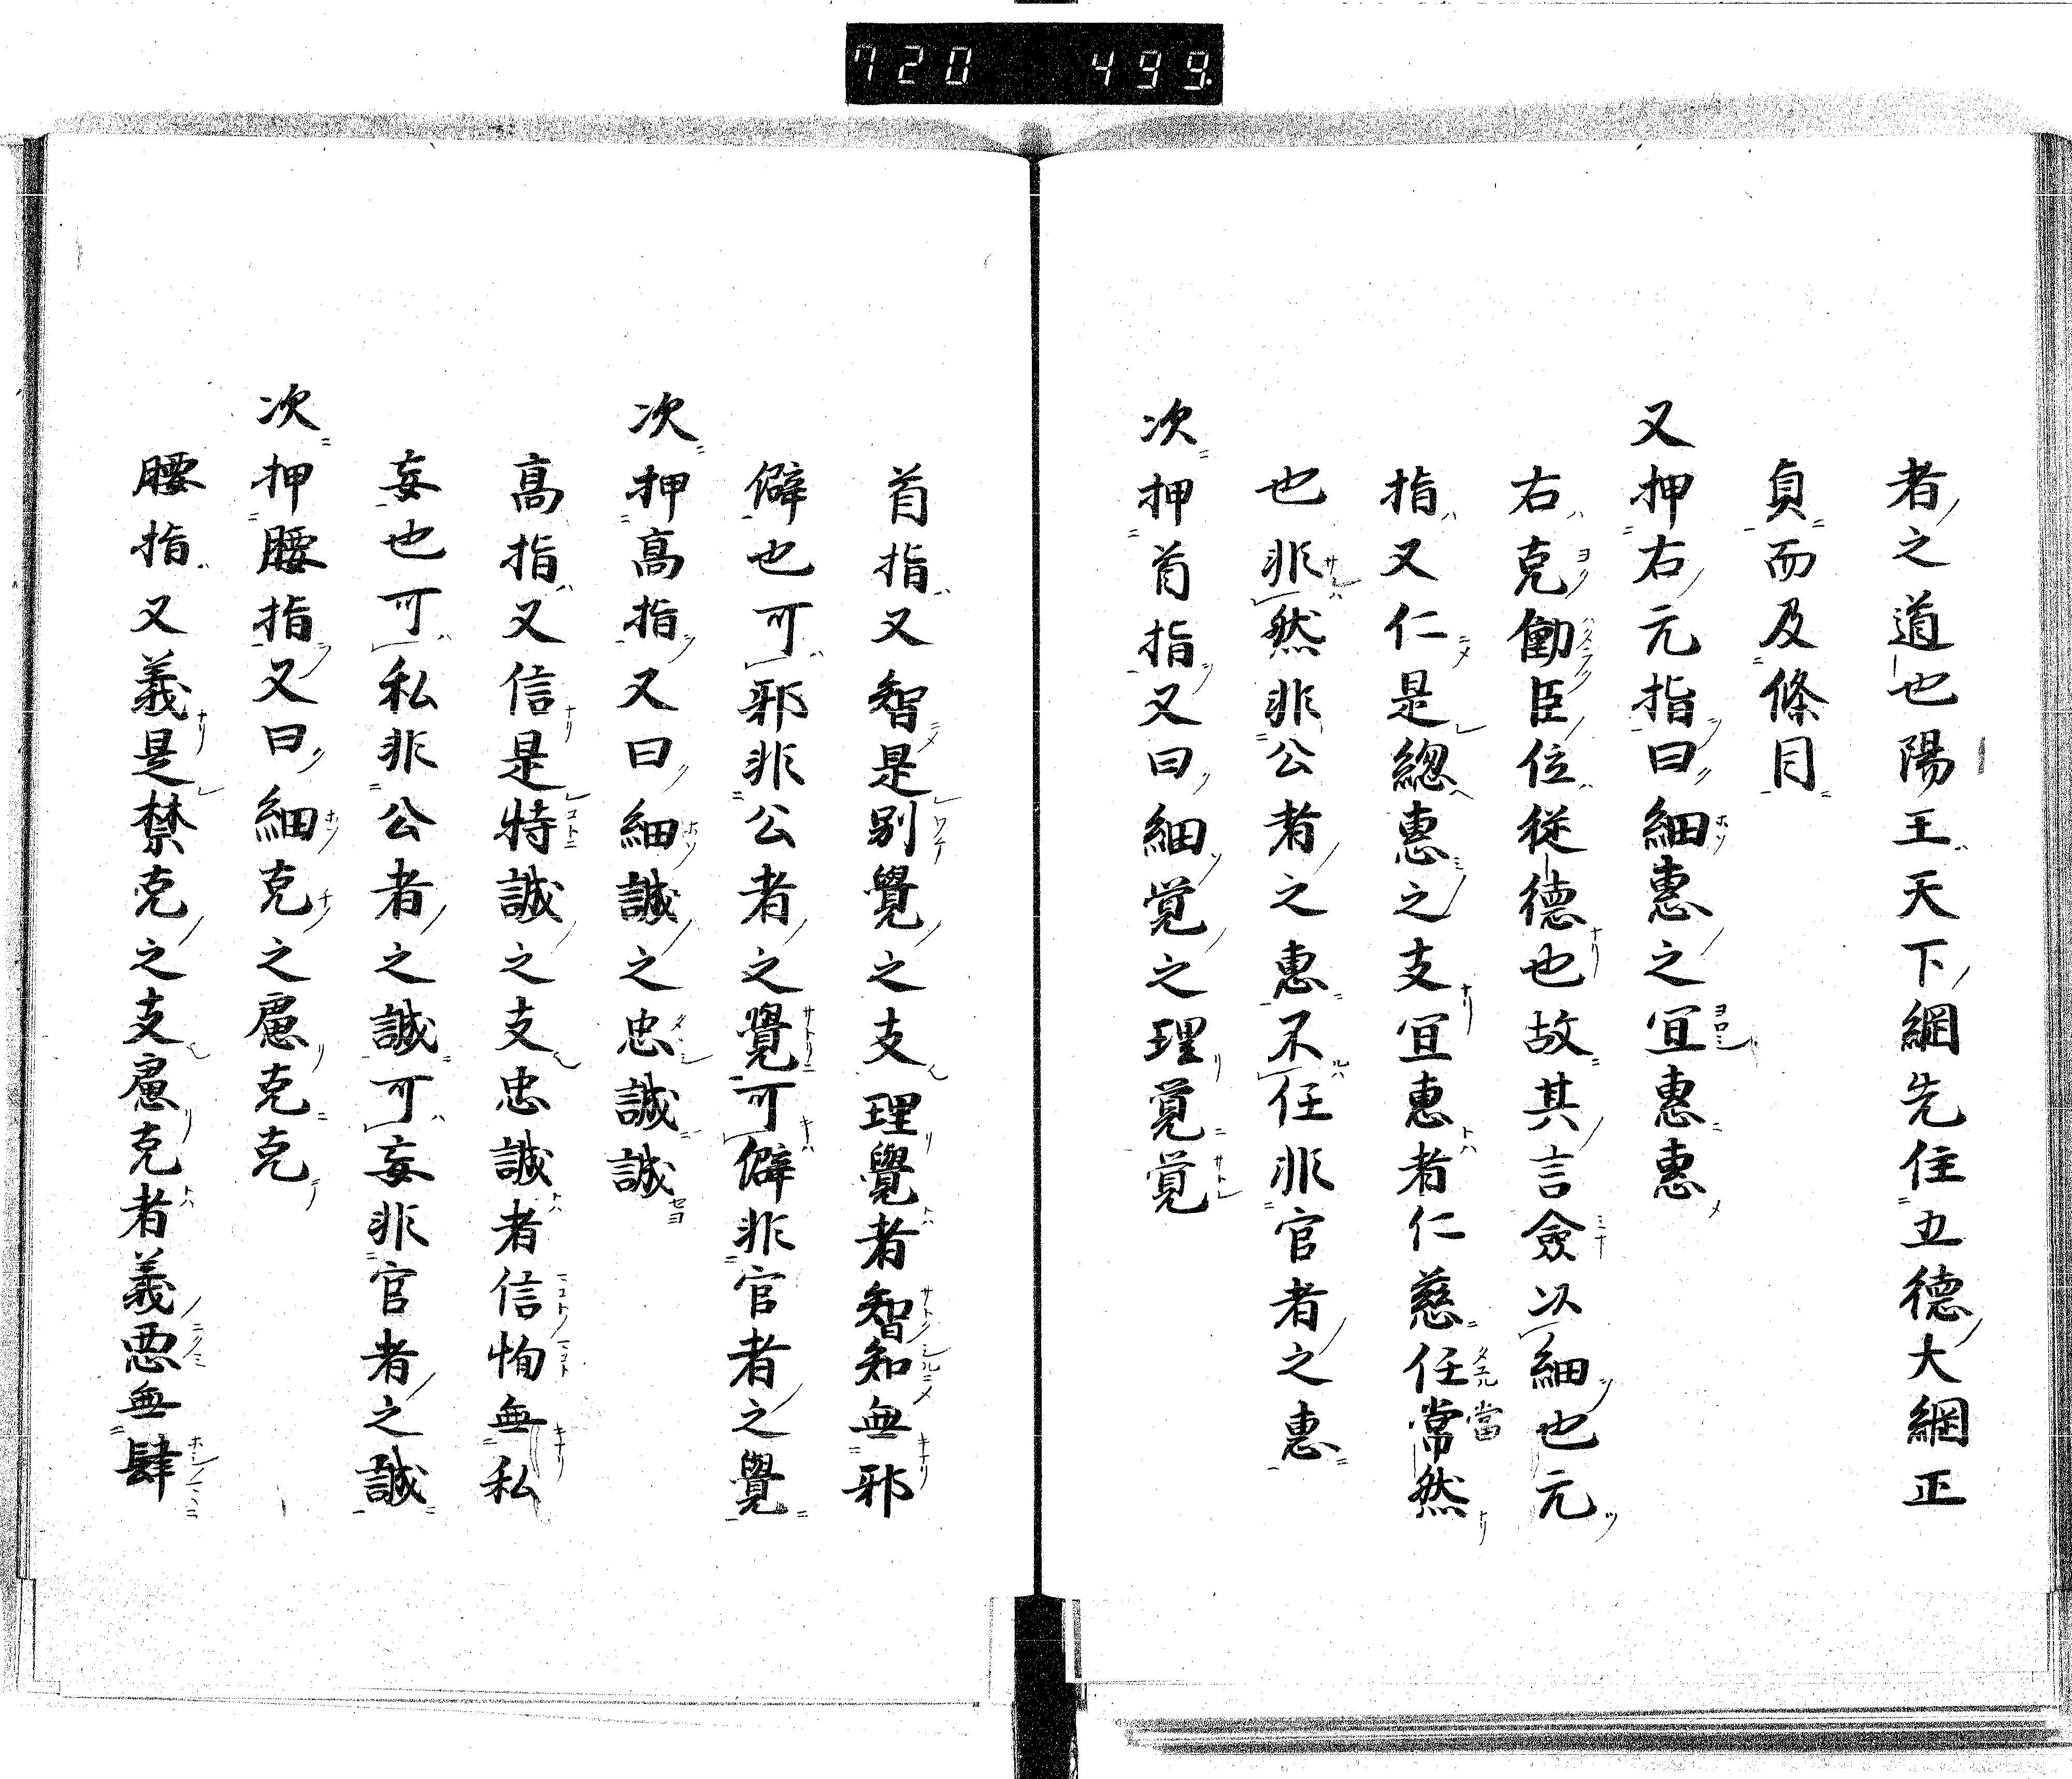 720 499.
者之道也陽王天下網先住五德大網正
貞而及條目
又押右元指曰細惠之宜惠惠
右克働臣位從德也故其言僉以細也元
指又仁是總惠之支宜惠者仁慈任常然
當
也非然非公者之惠不任非官者之惠
次押首指又曰細覚之理覚覚
首指又智是別覺之支理覺者智知無邪
僻也可邪非公者之覺可僻非官者之覺
次押高指又曰細誠之忠誠誠
高指又信是特誠之支忠誠者信恂無私
妄也可私非公者之誠可妄非官者之誠
次押腰指又曰細克之慮克克
腰指又義是禁克之支慮克者義悪無肆